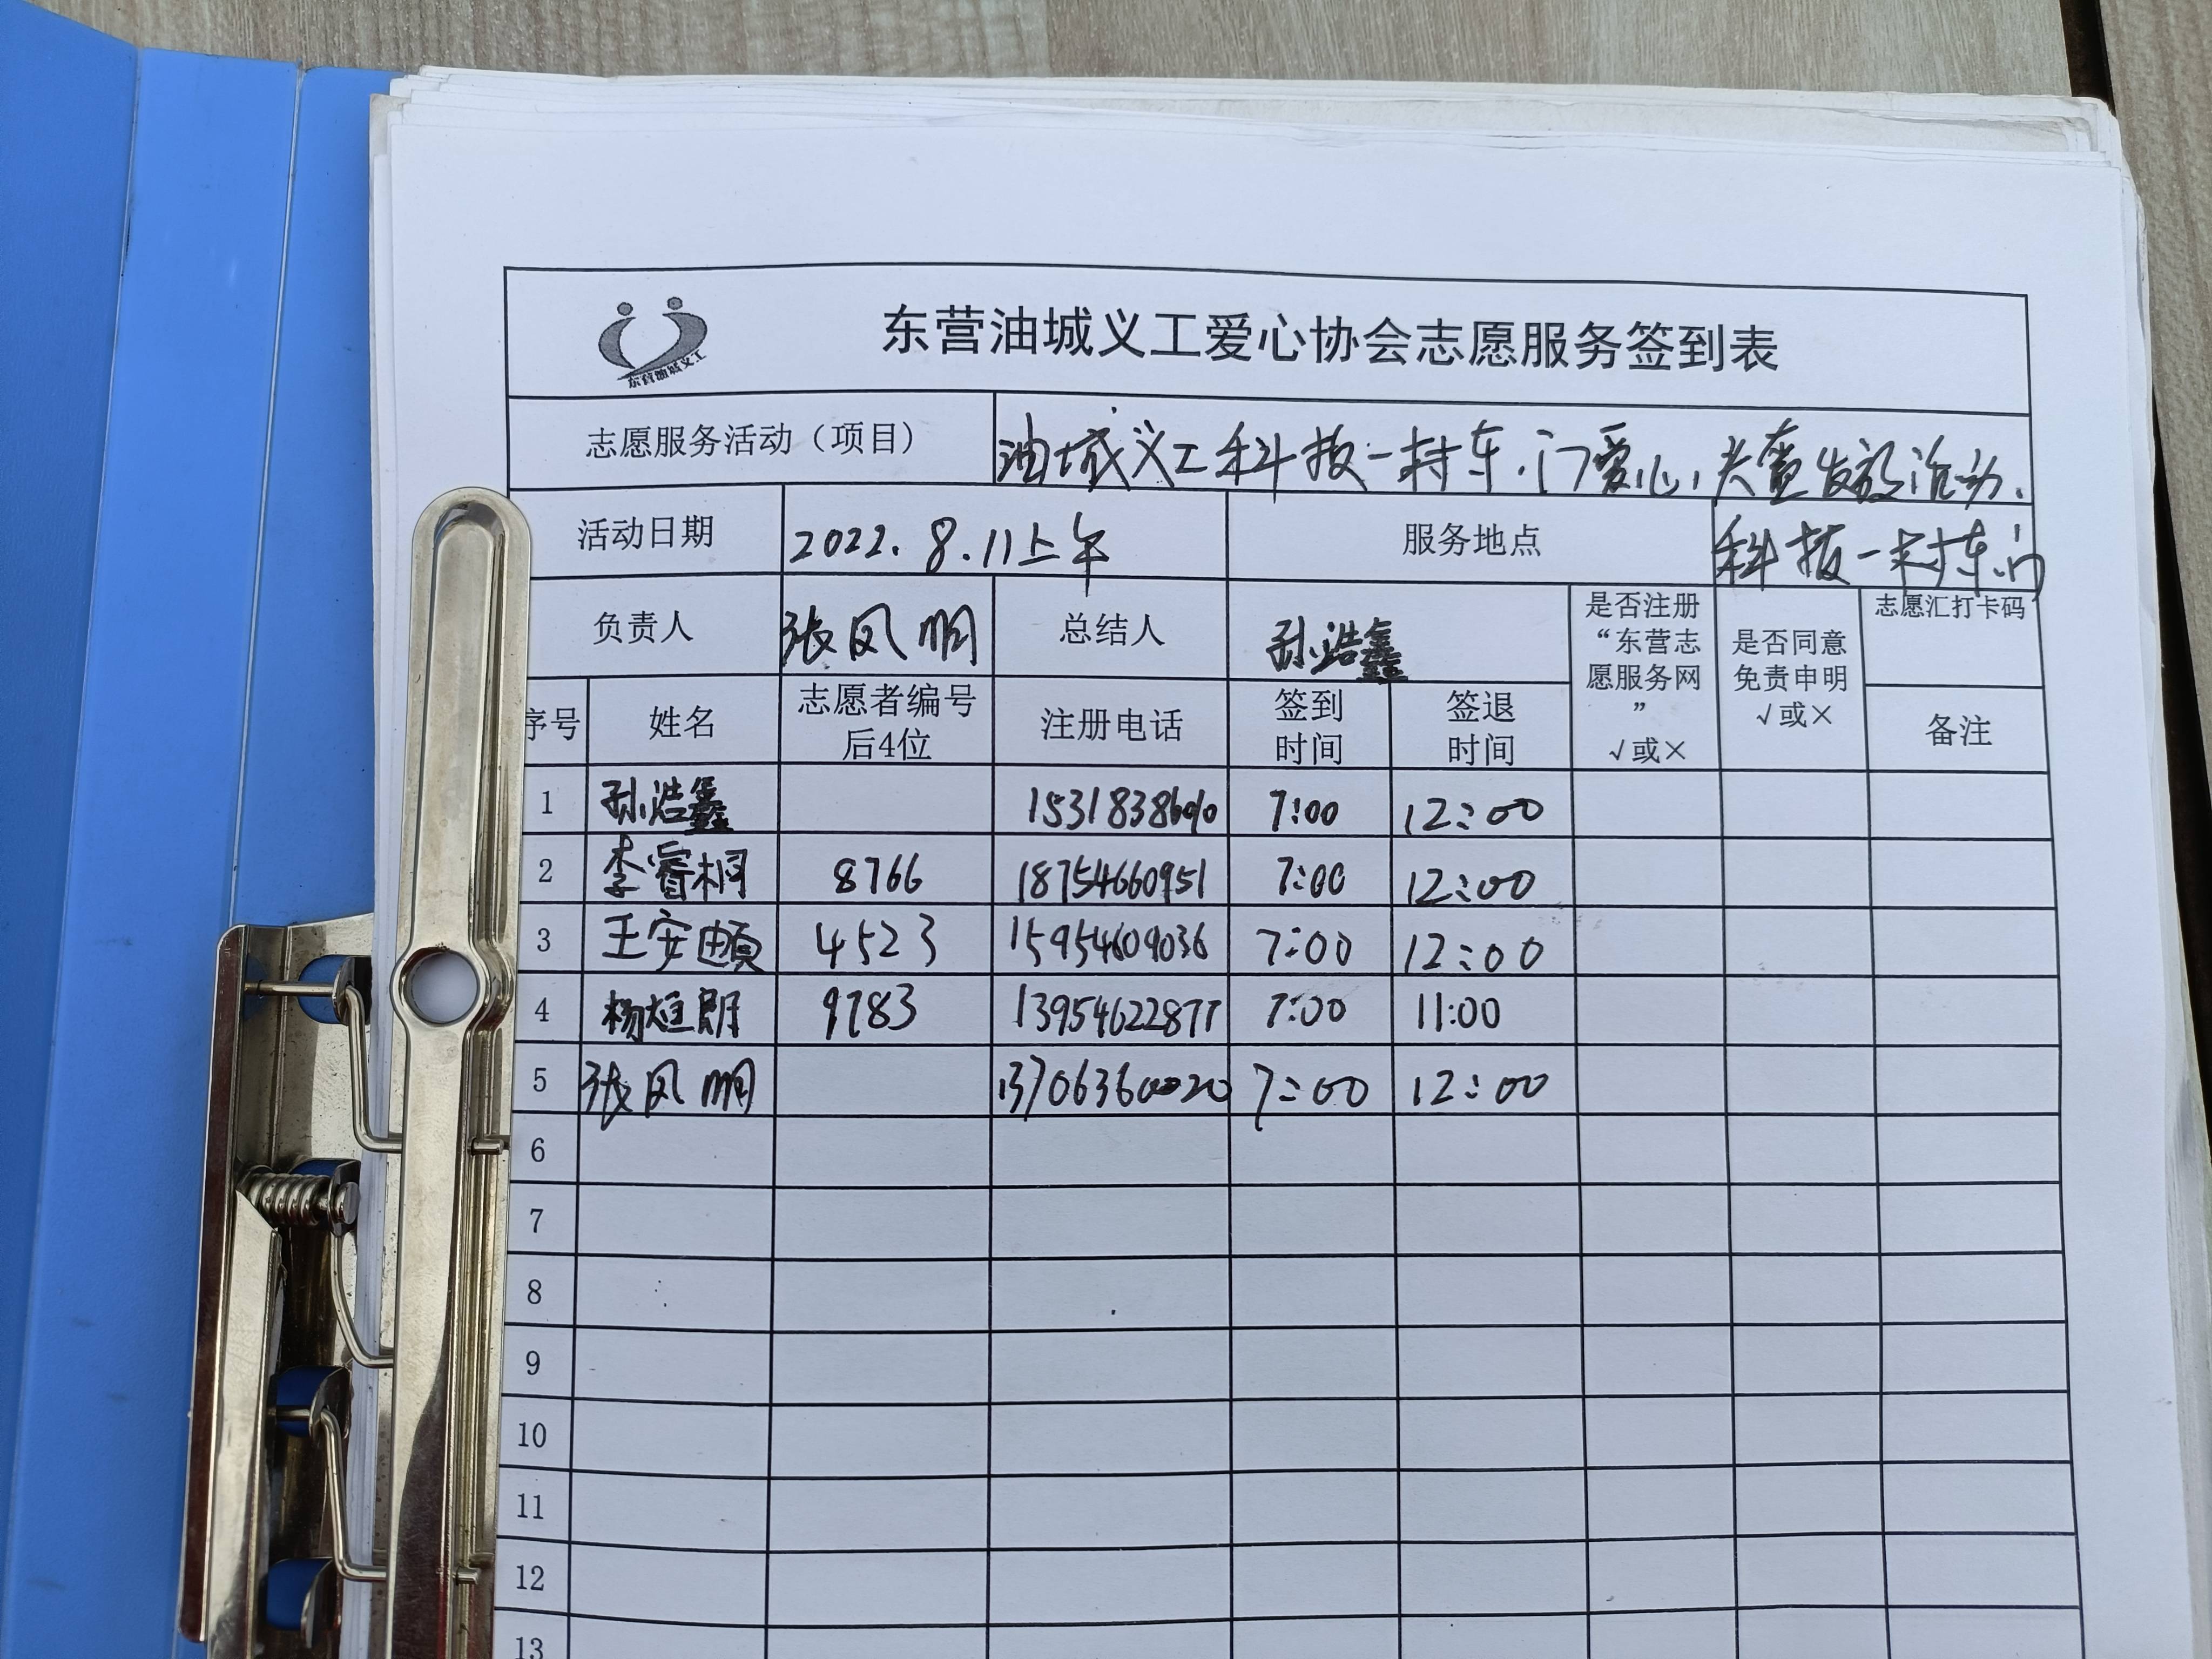 东营油城义工
东营油城义工爱心协会志愿服务签到表
志愿服务活动（项目） 油城义工科技一村东门爱心头盔发放活动.
活动日期 2022.8.11上午 服务地点 科技一村东门
负责人 张凤明 总结人 孙浩鑫 是否注册“东营志愿服务网” √或× 是否同意免责申明 √或× 志愿汇打卡码
序号 姓名 志愿者编号后4位 注册电话 签到时间 签退时间 备注
1 孙浩鑫 7:00 12:00
2 李睿桐 8766 18754660951 7:00 12:00
3 王安 4523 15954609036 7:00 12:00
4 杨烜朗 9783 13954622877 7:00 11:00
5 张凤明 13706360020 7:00 12:00
6
7
8
9
10
11
12
13